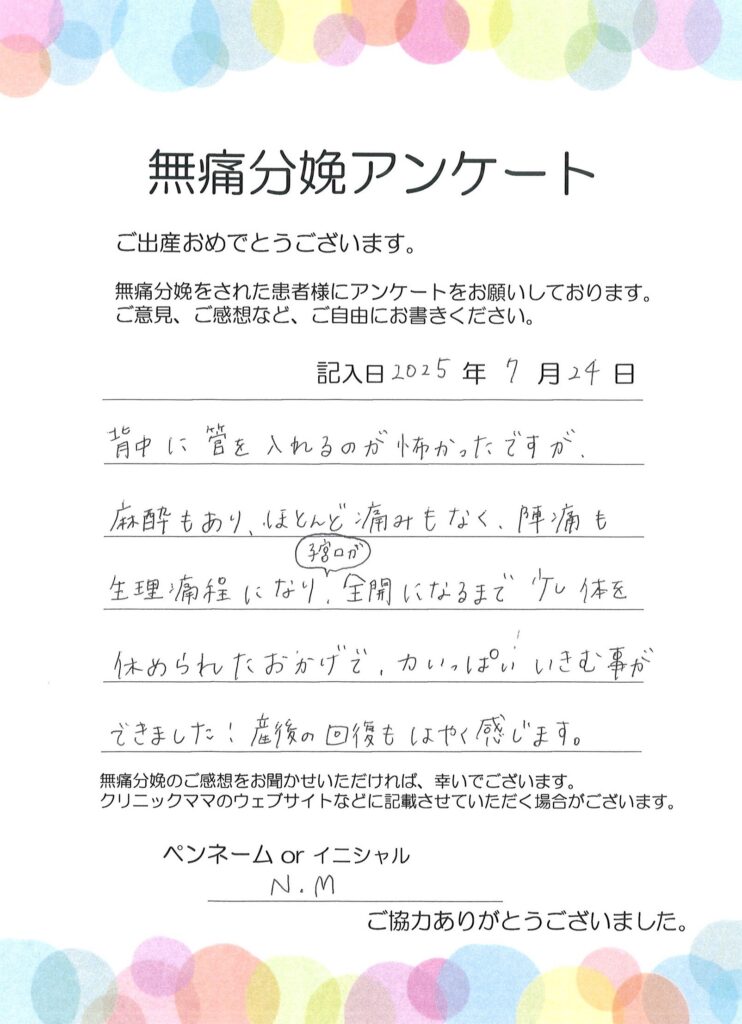 無痛分娩アンケート
ご出産おめでとうございます。
無痛分娩をされた患者様にアンケートをお願いしております。
ご意見、ご感想など、ご自由にお書きください。
記入日 2025 年 7 月 24 日
背中に管を入れるのが怖かったですが、
麻酔もあり、ほとんど痛みもなく、陣痛も
子宮口が
生理痛程になり、全開になるまで少し体を
休められたおかげで、力いっぱい いきむ事が
できました！産後の回復もはやく感じます。
無痛分娩のご感想をお聞かせいただければ、幸いでございます。
クリニックママのウェブサイトなどに記載させていただく場合がございます。
ペンネーム or イニシャル
N.M
ご協力ありがとうございました。